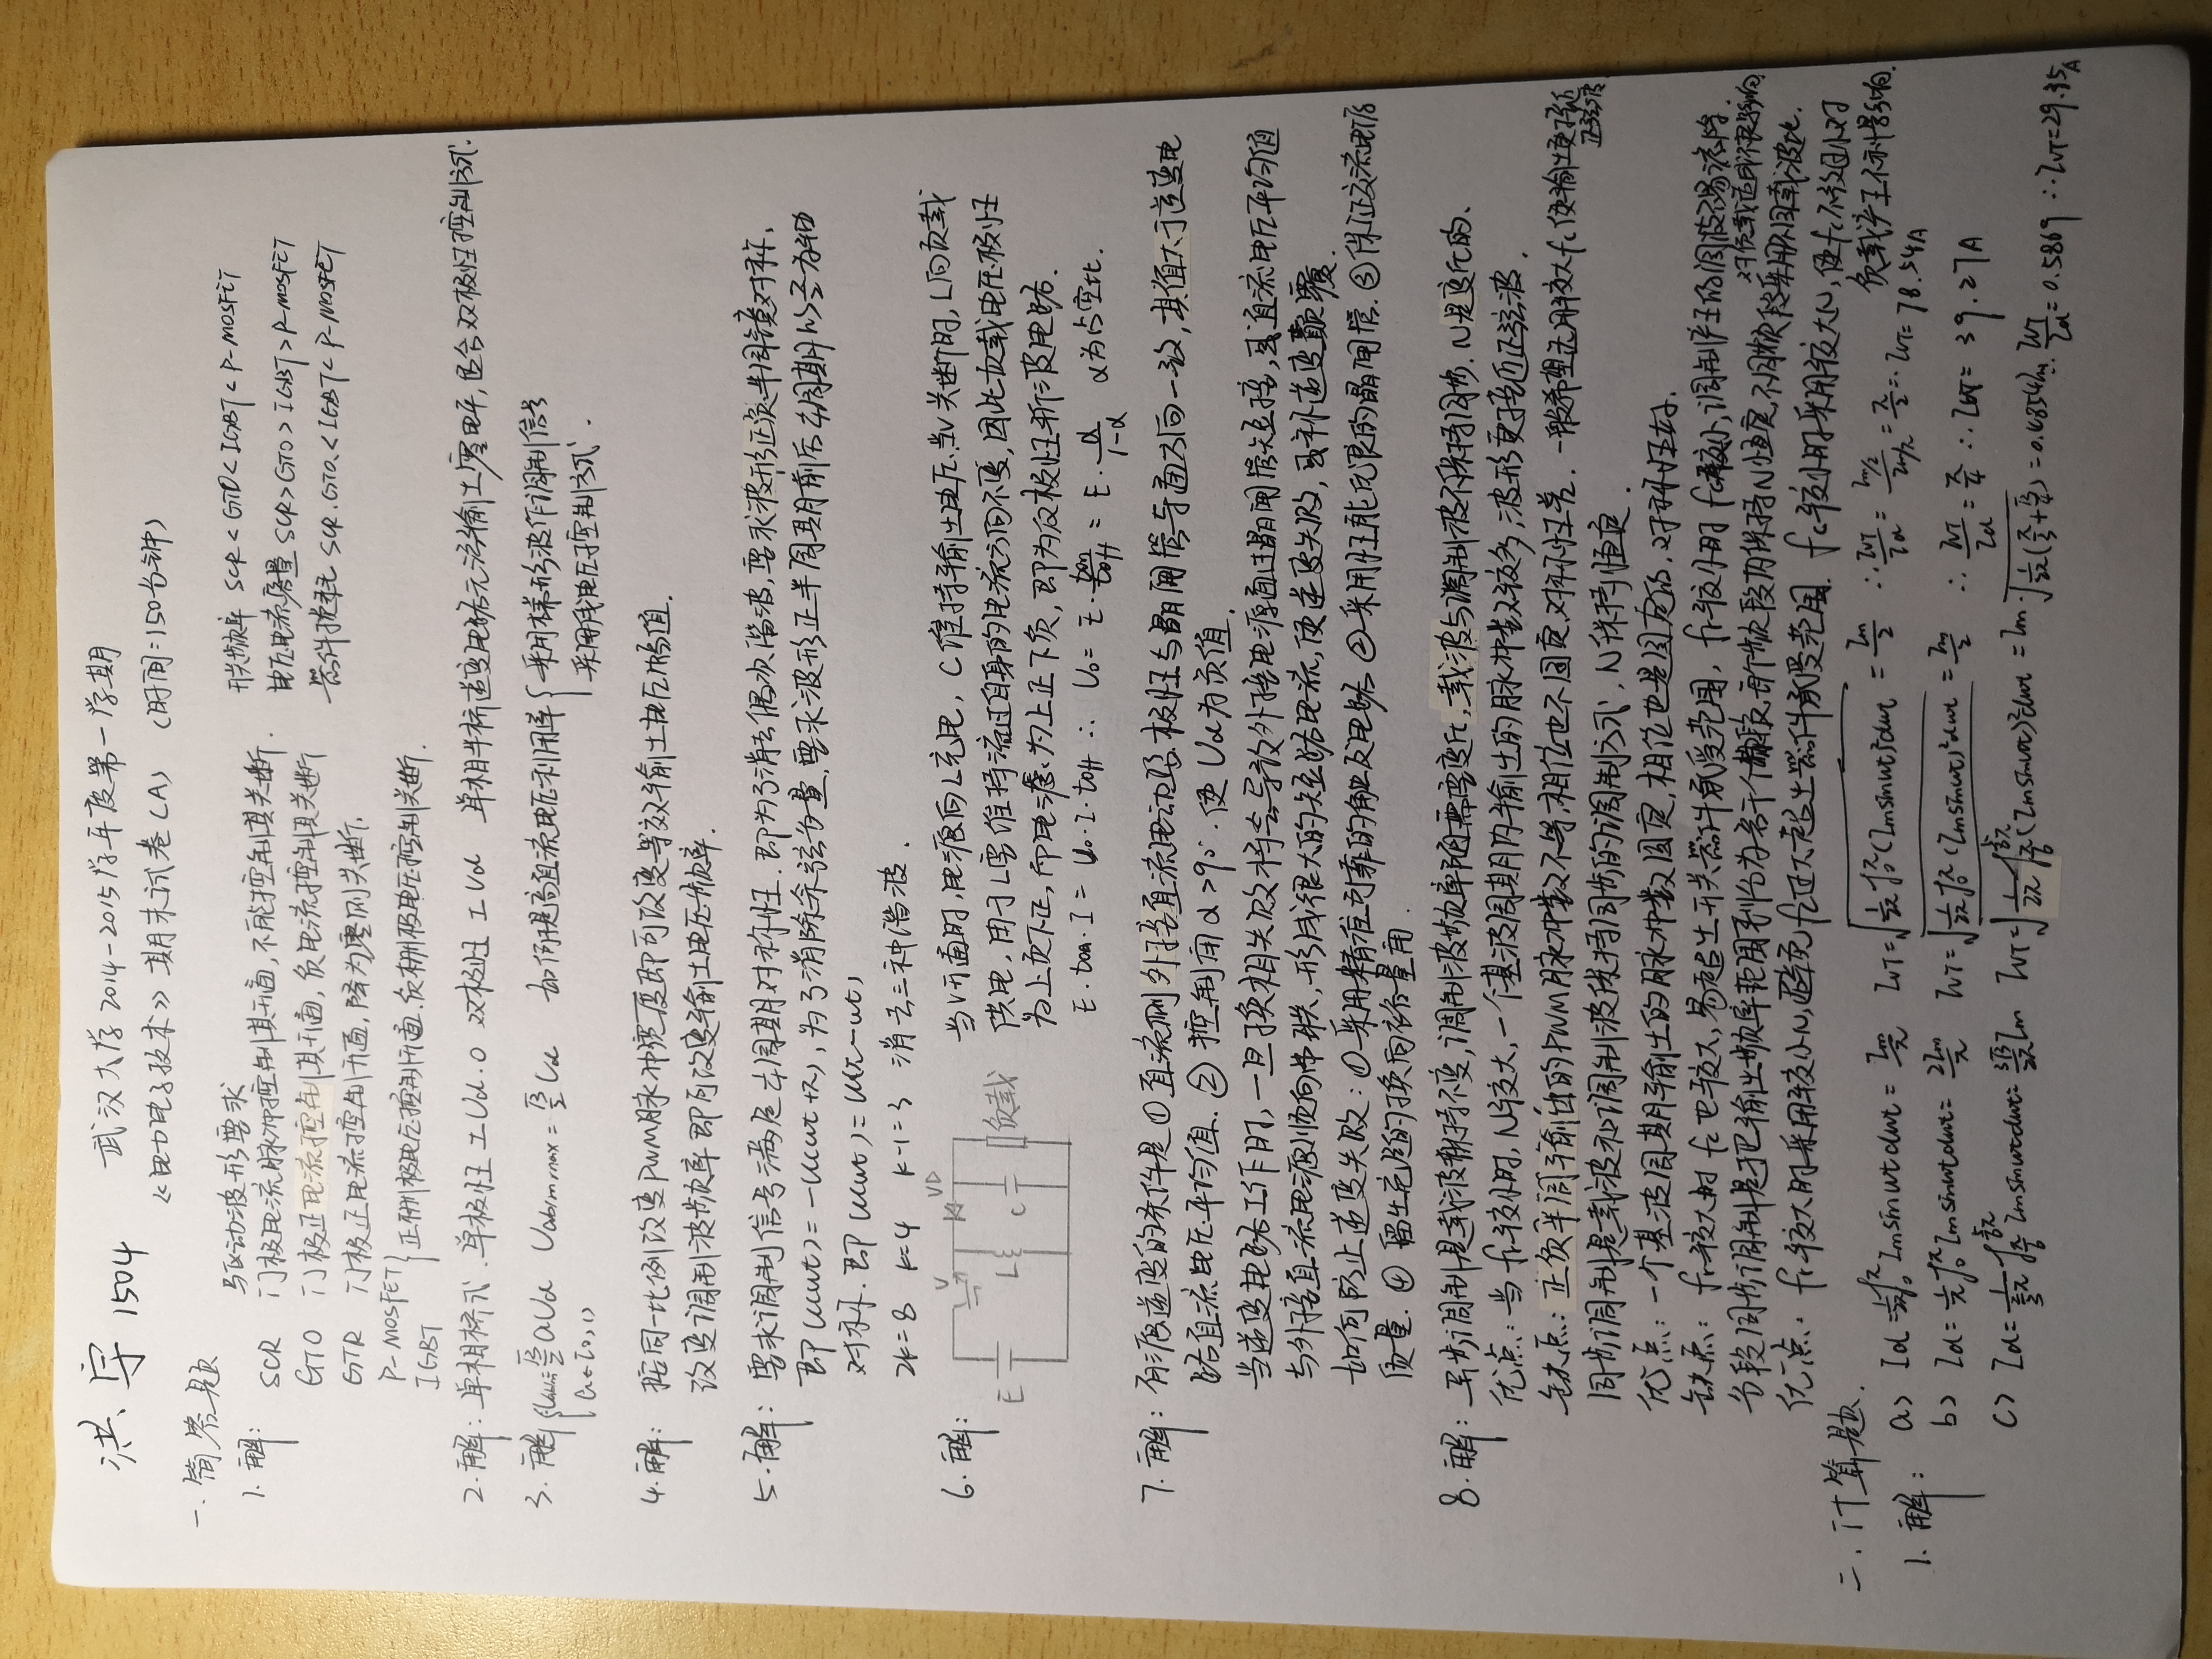 洪宇 1504
武汉大学2014-2015学年度第一学期
《电力电子技术》期末试卷(A) (时间:150分钟)
一.简答题
1.解: 驱动波形要求
SCR 门极电流脉冲控制其开通,不能控制其关断.
GTO 门极正电流控制其开通,负电流控制其关断
GTR 门极正电流控制开通,降为零则关断.
P-MOSFET
IGBT } 正栅极电压控制开通.负栅极电压控制关断.
开关频率 SCR<GTO<IGBT<P-MOSFET
电压电流容量 SCR>GTO>IGBT>P-MOSFET
器件损耗 SCR.GTO.<IGBT<P-MOSFET
2.解: 单相桥式.单极性±Ud.0 双极性±Ud 单相半桥逆变电路无法输出零电平,适合双极性控制方式.
3.解 { Uab1m=√3/2 aUd Uab1m,max=√3/2 Ud 如何提高直流电压利用率 { 采用梯形波作调制信号
a∈[0,1) 采用线电压控制方式.
4.解: 按同一比例改变PWM脉冲宽度即可改变等效输出电压幅值.
改变调制波频率即可改变输出电压频率.
5.解: 要求调制信号满足1/4周期对称性.即为了消去偶次谐波,要求波形正负半周镜对称,
即u(wt)=-u(wt+π),为了消除余弦分量,要求波形正半周期前后1/4周期以π/2为轴
对称.即u(wt)=u(π-wt)
2k=8 k=4 k-1=3 消去三种谐波.
6.解: V VD E L C 负载
当V开通时,电源向L充电,C维持输出电压.当V关断时,L向负载
供电,用于L要维持流过自身的电流方向不变,因此负载电压极性
为上负下正,而电源为上正下负,即为反极性斩波电路.
E·ton·I=U0·I·toff ∴ U0=E·ton/toff=E·α/(1-α) α为占空比.
7.解: 有源逆变的条件是①直流侧外接直流电动势.极性与晶闸管导通方向一致,其值大于逆变电
路直流电压平均值.②控制角α>90°.使Ud为负值.
当逆变电路工作时,一旦换相失败将会导致外接电源通过晶闸管短接,或直流电压平均值
与外接直流电源顺向串联,形成很大的短路电流,使逆变失败,或称逆变颠覆.
如何防止逆变失败:①采用精准可靠的触发电路②采用性能优良的晶闸管.③保证交流电源
质量.④留出充足的换向裕量角.
8.解: 异步调制是载波保持不变,调制波频率随需要变化,载波与调制波不保持同步.N是变化的.
优点:当fr较小时,N较大,一个基波周期内输出的脉冲数较多,波形更接近正弦波.
缺点:正负半周输出的PWM脉冲数不等,相位也不固定.对称性差.一般希望选用较大fc使输出更接近
正弦波
同步调制是载波和调制波保持同步的调制方式,N保持恒定.
优点:一个基波周期输出的脉冲数固定,相位也是固定的.对称性好.
缺点:fr较大时fc也较大,易超出开关器件承受范围,fr较小时fc较小,调制产生的谐波不易滤除.
对负载造成不良影响
分段同步调制是把输出频率范围划分为若干个频段,每个频段内保持N恒定,不同频段采用不同载波比.
优点.fr较大时采用较小N,避免fc过大超出器件承受范围.fc较小时采用较大N,使fc不致过小对
负载产生不利影响.
二.计算题.
1.解: a) Id=1/2π∫₀^π Imsinwtdwt=Im/π IVT=√(1/2π∫₀^π(Imsinwt)²dwt)=Im/2 ∴IVT/Id=(Im/2)/(Im/π)=π/2 ∴IVT=78.54A
b) Id=1/π∫₀^π Imsinwtdwt=2Im/π IVT=√(1/2π∫₀^π(Imsinwt)²dwt)=Im/2 ∴IVT/Id=π/4 ∴IVT=39.27A
c) Id=1/(2/3π)∫_{π/6}^{5/6π} Imsinwtdwt=3√3/2π Im IVT=√(1/2π∫_{π/6}^{5/6π}(Imsinwt)²dwt)=Im·√(1/2π(π/3+√3/4))=0.4854Im ∴IVT/Id=0.5869 ∴IVT=29.35A